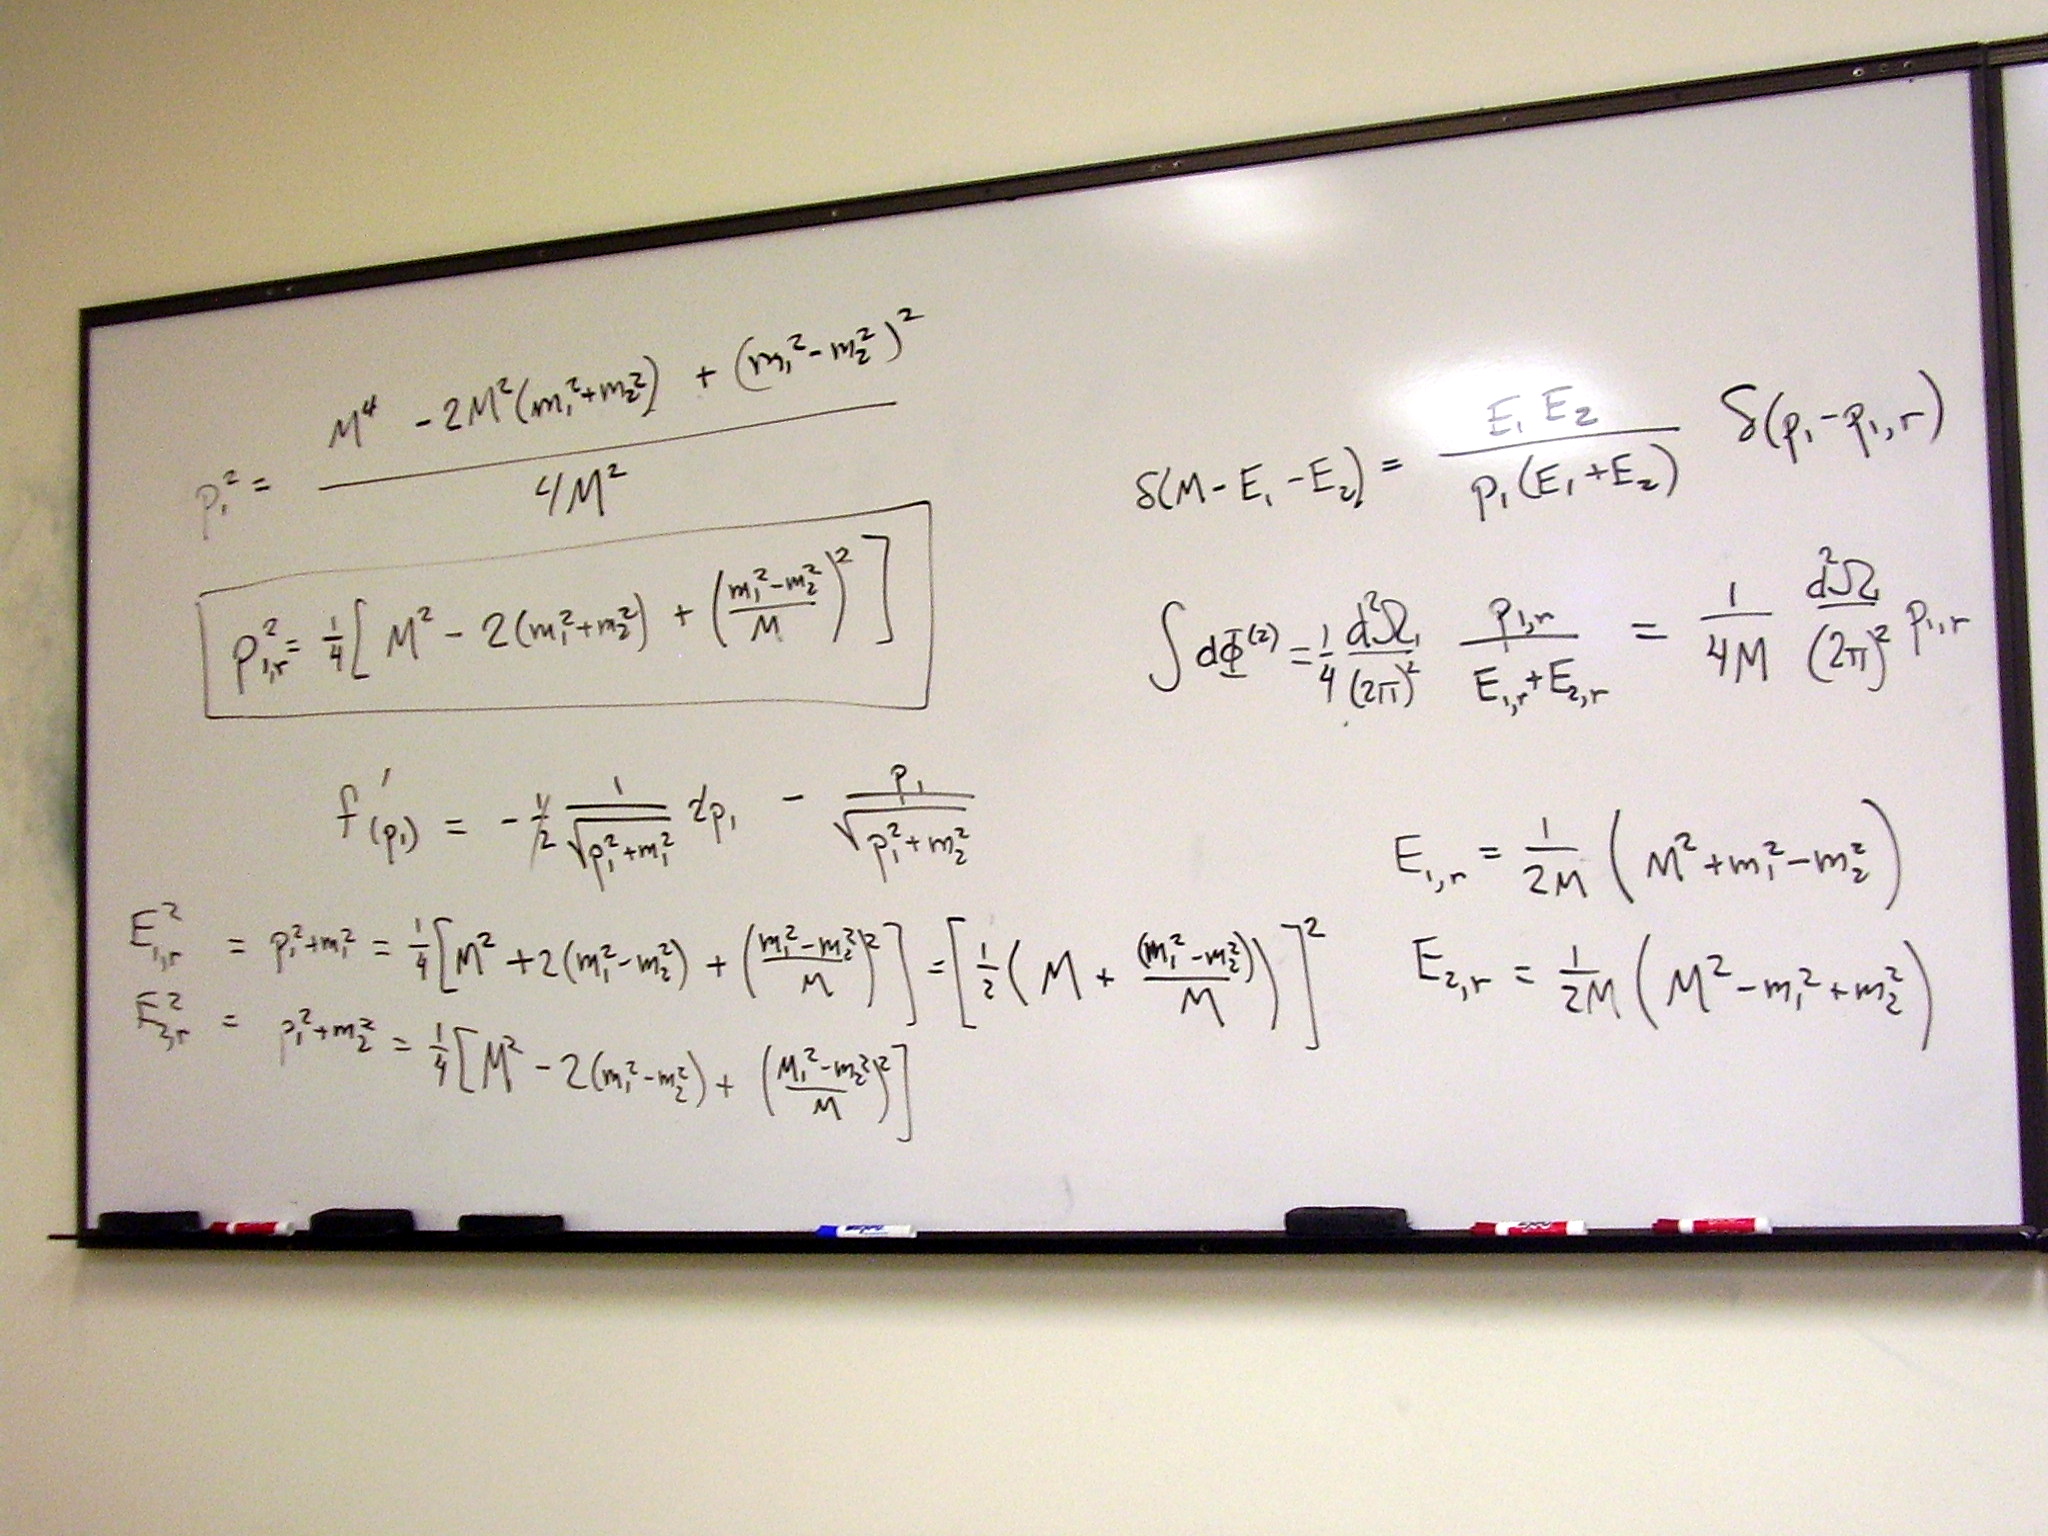 p₁² = (M⁴ - 2M²(m₁²+m₂²) + (m₁²-m₂²)²) / 4M²
p₁,ᵣ² = 1/4 [ M² - 2(m₁²+m₂²) + ((m₁²-m₂²)/M)² ]
f'(p₁) = - 1/2 1/√(p₁²+m₁²) 2p₁ - p₁/√(p₁²+m₂²)
E₁,ᵣ² = p₁²+m₁² = 1/4 [ M² + 2(m₁²-m₂²) + ((m₁²-m₂²)/M)² ] = [ 1/2 ( M + (m₁²-m₂²)/M ) ]²
E₂,ᵣ² = p₁²+m₂² = 1/4 [ M² - 2(m₁²-m₂²) + ((M₁²-m₂²)/M)² ]
δ(M - E₁ - E₂) = E₁ E₂ / p₁(E₁+E₂) δ(p₁-p₁,ᵣ)
∫ dΦ⁽²⁾ = 1/4 d²Ω₁/(2π)² p₁,ᵣ/(E₁,ᵣ+E₂,ᵣ) = 1/4M d²Ω/(2π)² p₁,ᵣ
E₁,ᵣ = 1/2M ( M² + m₁² - m₂² )
E₂,ᵣ = 1/2M ( M² - m₁² + m₂² )